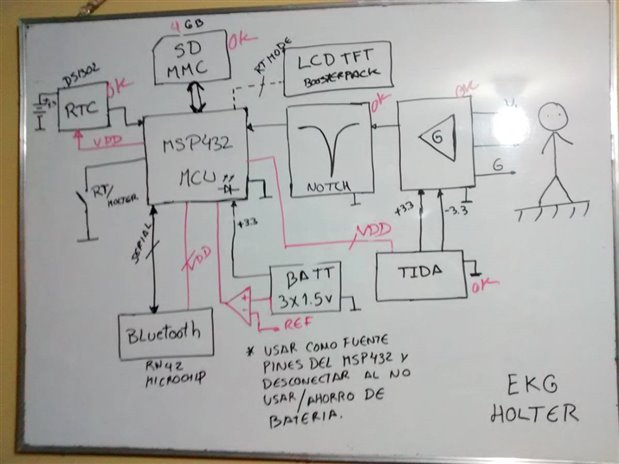 4 GB
SD
MMC
OK
DS1302
RTC
OK
VDD
RT MODE
LCD TFT
BOOSTERPACK
MSP432
MCU
OK
NOTCH
OK
G
G
RT/
HOLTER
SERIAL
VDD
+3.3
VDD
+3.3
-3.3
TIDA
OK
BATT
3X1.5V
+
-
REF
BLUETOOTH
RN42
MICROCHIP
* USAR COMO FUENTE
PINES DEL MSP432 Y
DESCONECTAR AL NO
USAR/AHORRO DE
BATERIA.
EKG
HOLTER